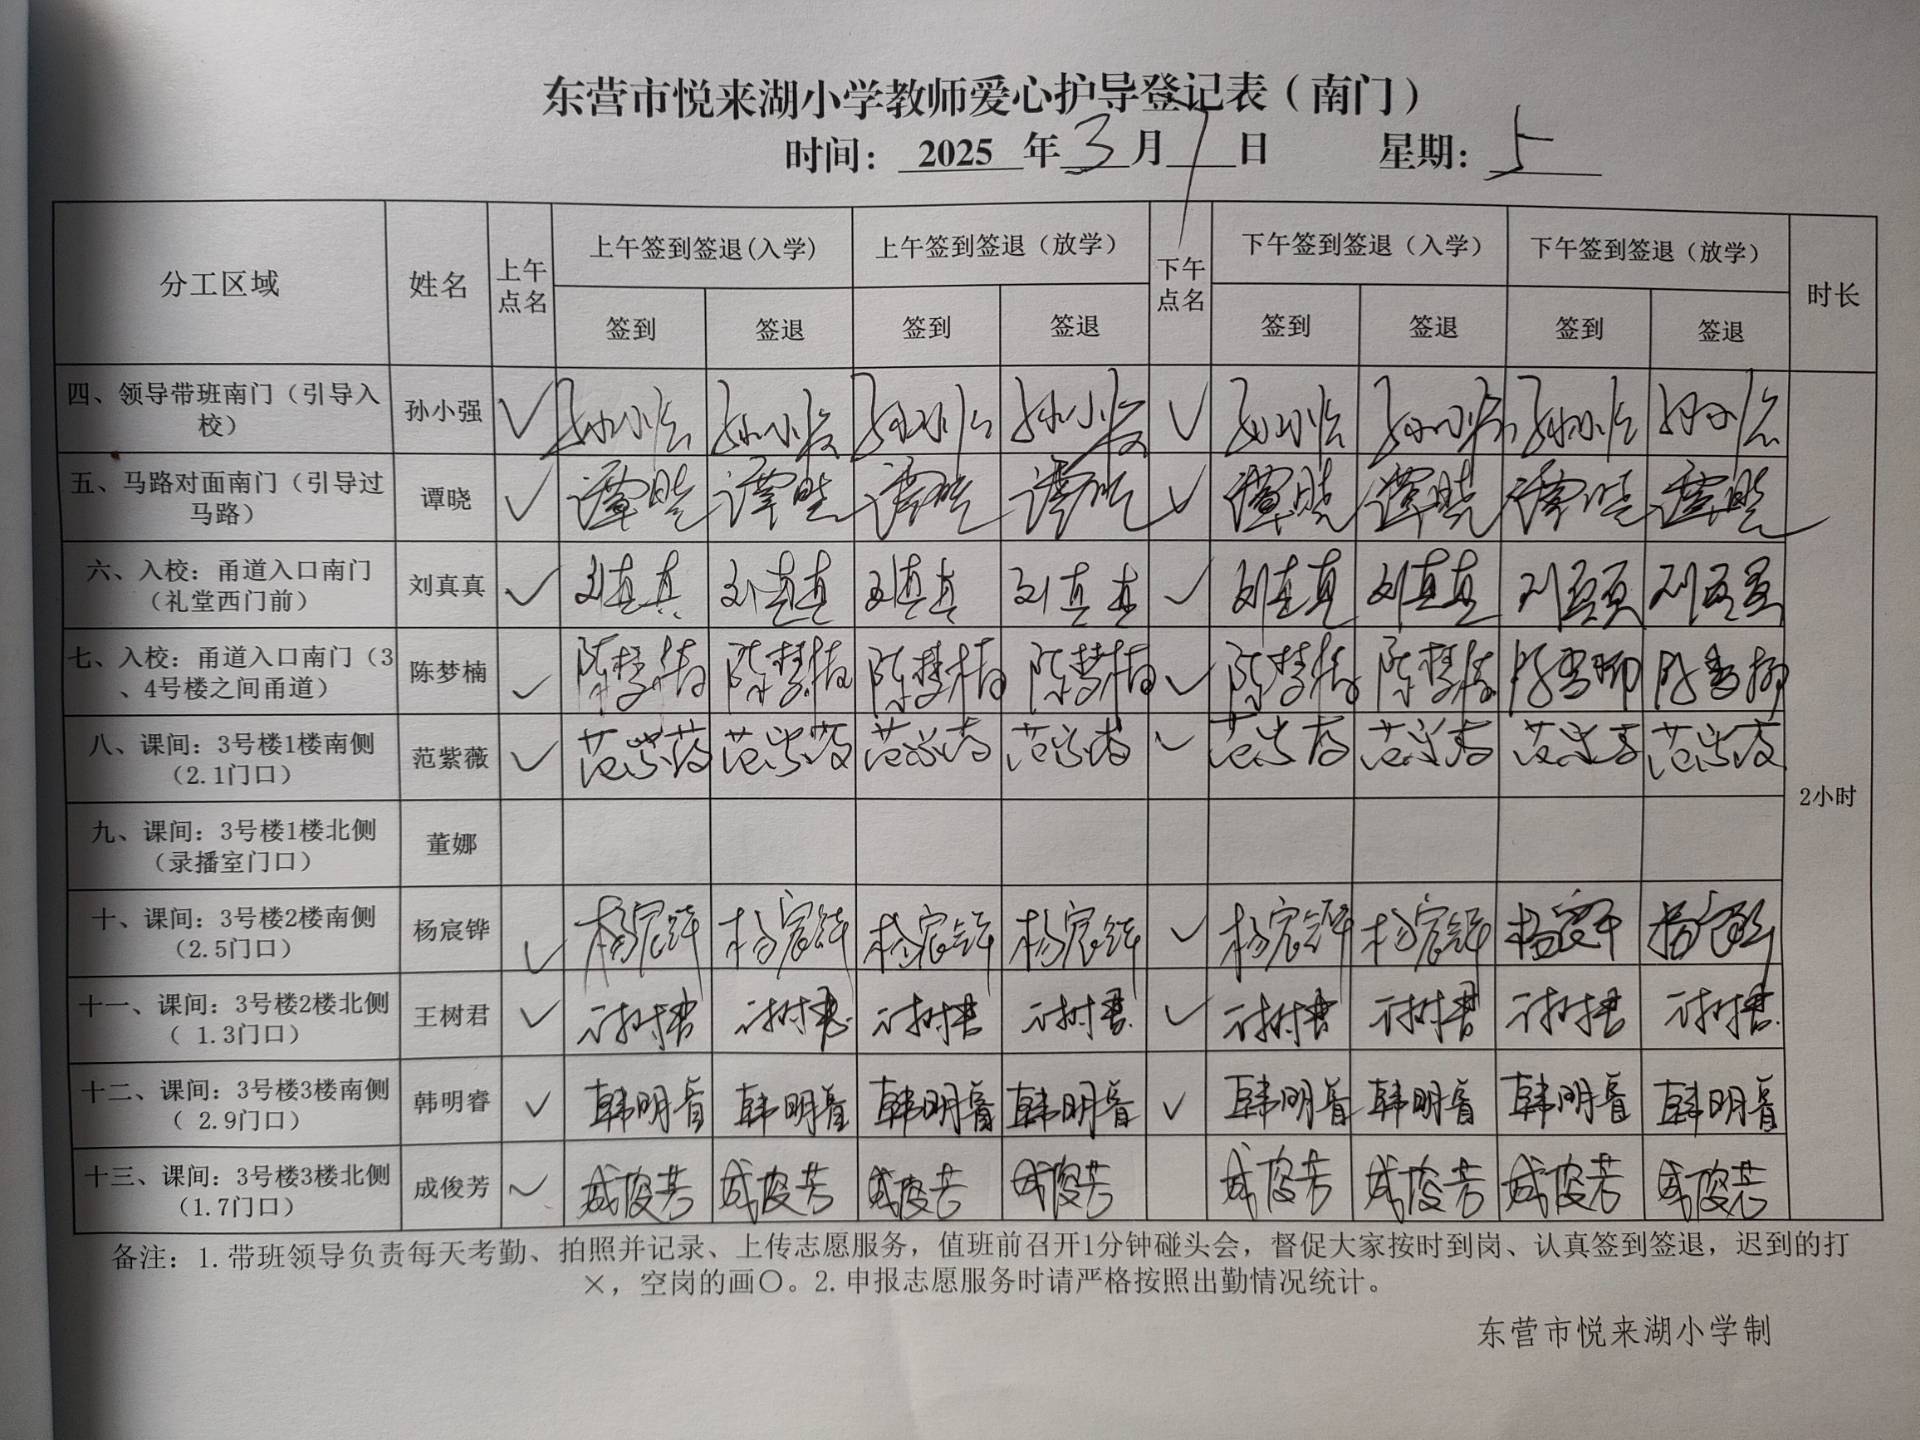 东营市悦来湖小学教师爱心护导登记表（南门）
时间： 2025 年 3 月 7 日 星期： 5
分工区域 姓名 上午点名 上午签到签退(入学) 上午签到签退（放学） 下午点名 下午签到签退（入学） 下午签到签退（放学） 时长
签到 签退 签到 签退 签到 签退 签到 签退
四、领导带班南门（引导入校） 孙小强 ✓ 孙小强 孙小强 孙小强 孙小强 ✓ 孙小强 孙小强 孙小强 孙小强
五、马路对面南门（引导过马路） 谭晓 ✓ 谭晓 谭晓 谭晓 谭晓 ✓ 谭晓 谭晓 谭晓 谭晓
六、入校：甬道入口南门（礼堂西门前） 刘真真 ✓ 刘真真 刘真真 刘真真 刘真真 ✓ 刘真真 刘真真 刘真真 刘真真
七、入校：甬道入口南门（3、4号楼之间甬道） 陈梦楠 ✓ 陈梦楠 陈梦楠 陈梦楠 陈梦楠 ✓ 陈梦楠 陈梦楠
八、课间：3号楼1楼南侧（2.1门口） 范紫薇 ✓ 范紫薇 范紫薇 范紫薇 范紫薇 ✓ 范紫薇 范紫薇 范紫薇 范紫薇
九、课间：3号楼1楼北侧（录播室门口） 董娜
2小时
十、课间：3号楼2楼南侧（2.5门口） 杨宸铧 ✓ 杨宸铧 杨宸铧 杨宸铧 杨宸铧 ✓ 杨宸铧 杨宸铧
十一、课间：3号楼2楼北侧（ 1.3门口） 王树君 ✓ 王树君 王树君 王树君 王树君 ✓ 王树君 王树君 王树君 王树君
十二、课间：3号楼3楼南侧（ 2.9门口） 韩明睿 ✓ 韩明睿 韩明睿 韩明睿 韩明睿 ✓ 韩明睿 韩明睿 韩明睿 韩明睿
十三、课间：3号楼3楼北侧（1.7门口） 成俊芳 ✓ 成俊芳 成俊芳 成俊芳 成俊芳 成俊芳 成俊芳 成俊芳 成俊芳
备注：1.带班领导负责每天考勤、拍照并记录、上传志愿服务，值班前召开1分钟碰头会，督促大家按时到岗、认真签到签退，迟到的打
×，空岗的画〇。2.申报志愿服务时请严格按照出勤情况统计。
东营市悦来湖小学制